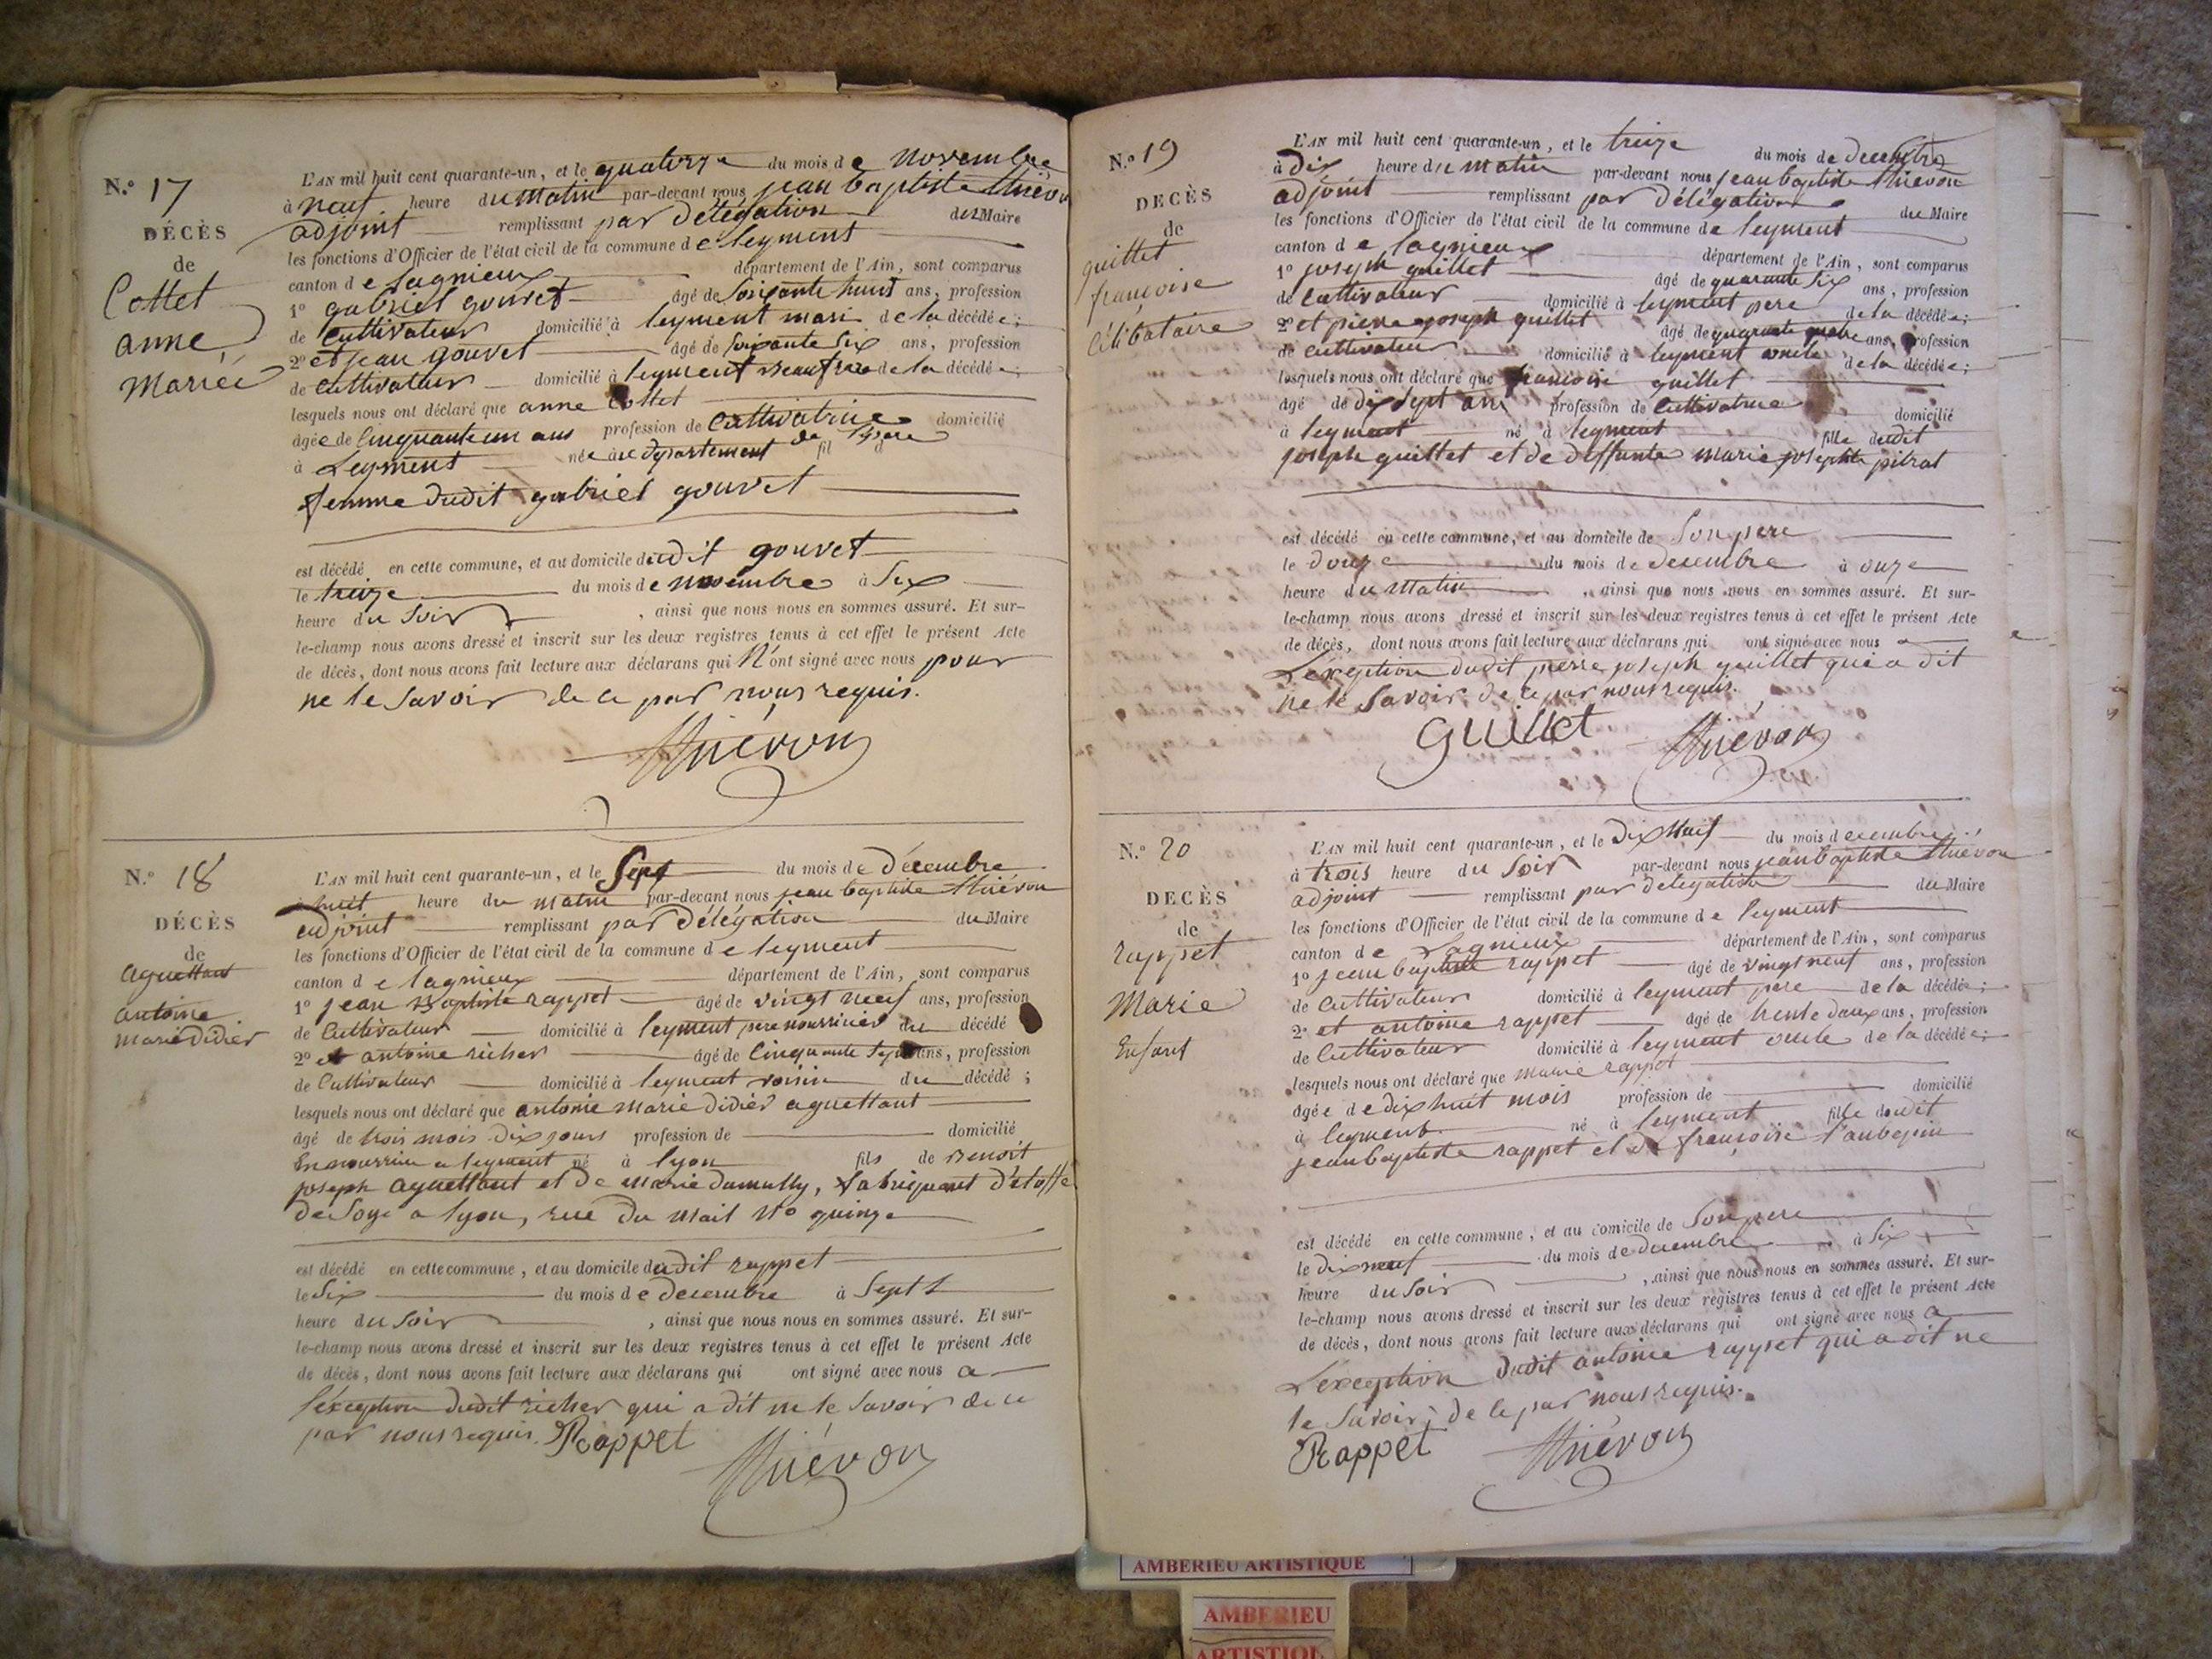 N.° 17
DÉCÈS
de
Cottet
anne
Mariée
L'AN mil huit cent quarante-un, et le quatorze du mois de novembre
à neuf heure du Matin par-devant nous jean baptiste thiévon
adjoint remplissant par Délégation du Maire
les fonctions d'Officier de l'état civil de la commune de leyment
canton de Lagnieux département de l'Ain, sont comparus
1° gabriel gouvet âgé de Soixante huit ans, profession
de Cultivateur domicilié à leyment mari de la décédée;
2° et jean gouvet âgé de soixante Six ans, profession
de Cultivateur domicilié à leyment Beaufrere de la décédée;
lesquels nous ont déclaré que anne Cottet
âgée de Cinquante un ans profession de Cultivatrice domicilié
à Leyment née au département de l'isere fil d
femme dudit gabriel gouvet
est décédé en cette commune, et au domicile dudit gouvet
le treize du mois de novembre à Six
heure du Soir, ainsi que nous nous en sommes assuré. Et sur-
le-champ nous avons dressé et inscrit sur les deux registres tenus à cet effet le présent Acte
de décès, dont nous avons fait lecture aux déclarans qui N'ont signé avec nous pour
ne le Savoir de ce par nous requis.
thiévon
N.° 18
DÉCÈS
de
aguettant
antoine
marie Didier
L'AN mil huit cent quarante-un, et le Sept du mois de Décembre
à huit heure du matin par-devant nous jean baptiste thiévon
adjoint remplissant par Délégation du Maire
les fonctions d'Officier de l'état civil de la commune de leyment
canton de lagnieux département de l'Ain, sont comparus
1° jean Baptiste rappet âgé de vingt neuf ans, profession
de Cultivateur domicilié à leyment pere nourricier du décédé
2° et antoine richer âgé de Cinquante Sept ans, profession
de Cultivateur domicilié à leyment voisin du décédé;
lesquels nous ont déclaré que antoine marie Didier aguettant
âgé de trois mois Dix jours profession de domicilié
En nourrice a leyment né à lyon fils de Benoit
joseph aguettant et de marie dumully, fabriquant d'étoffe
de Soye a lyon, rue du Mail No quinze
est décédé en cette commune, et au domicile dudit rappet
le Six du mois de Decembre à Sept
heure du Soir, ainsi que nous nous en sommes assuré. Et sur-
le-champ nous avons dressé et inscrit sur les deux registres tenus à cet effet le présent Acte
de décès, dont nous avons fait lecture aux déclarans qui ont signé avec nous a
l'exception dudit richer qui a dit ne le Savoir de ce
par nous requis. Rappet
thiévon
N.° 19
DECÈS
de
guillet
françoise
Célibataire
L'AN mil huit cent quarante-un, et le treize du mois de decembre
à Dix heure du Matin par-devant nous jean baptiste thiévon
adjoint remplissant par Délégation du Maire
les fonctions d'Officier de l'état civil de la commune de leyment
canton de lagnieux département de l'Ain, sont comparus
1° joseph guillet âgé de quarante Six ans, profession
de Cultivateur domicilié à leyment pere de la décédée;
2° et pierre joseph guillet âgé de quarante quatre ans, profession
de Cultivateur domicilié à leyment oncle de la décédée;
lesquels nous ont déclaré que françoise guillet
âgé de dix sept ans profession de Cultivatrice domicilié
à leyment né à leyment fille dudit
joseph guillet et de deffunte marie josephte pitrat
est décédé en cette commune, et au domicile de Son pere
le Douze du mois de decembre à onze
heure du Matin, ainsi que nous nous en sommes assuré. Et sur-
le-champ nous avons dressé et inscrit sur les deux registres tenus à cet effet le présent Acte
de décès, dont nous avons fait lecture aux déclarans qui ont signé avec nous a
L'exception dudit pierre joseph guillet qui a dit
ne le Savoir de ce par nous requis.
GUILLet thiévon
N.° 20
DECÈS
de
rappet
Marie
Enfant
L'AN mil huit cent quarante-un, et le Dix Neuf du mois decembre
à trois heure du Soir par-devant nous jean baptiste thiévon
adjoint remplissant par délégation du Maire
les fonctions d'Officier de l'état civil de la commune de leyment
canton de Lagnieux département de l'Ain, sont comparus
1° jean baptiste rappet âgé de vingt neuf ans, profession
de Cultivateur domicilié à leyment pere de la décédée;
2° et antoine rappet âgé de trente deux ans, profession
de Cultivateur domicilié à leyment oncle de la décédée;
lesquels nous ont déclaré que marie rappet
âgée de dix huit mois profession de domicilié
à leyment né à leyment fille dudit
jean baptiste rappet et de françoise l'aubepin
est décédé en cette commune, et au domicile de Son pere
le dix neuf du mois de decembre à Six
heure du Soir, ainsi que nous nous en sommes assuré. Et sur-
le-champ nous avons dressé et inscrit sur les deux registres tenus à cet effet le présent Acte
de décès, dont nous avons fait lecture aux déclarans qui ont signé avec nous a
L'exception dudit antoine rappet qui a dit ne
le Savoir; de ce par nous requis.
Rappet thiévon
AMBERIEU ARTISTIQUE
AMBERIEU
ARTISTIQU